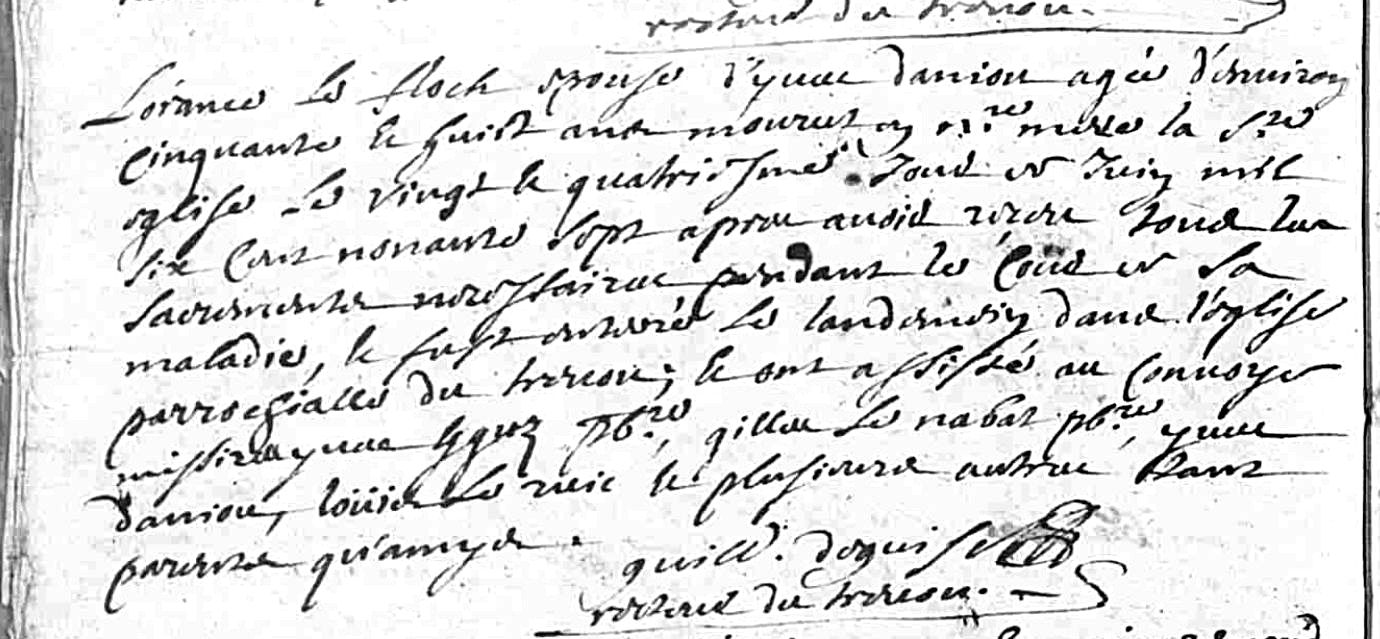 recteur du trevou.
Lorance Le floch espouse d'yves daniou agée d'environ
cinquante & huict ans mourut en n.re mere la s.te
eglise Le vingt & quatriesme Jour de Juin mil
six cent nonante sept apres avoir receu tous les
sacrements necessaires pendant le cour de sa
maladie, & fust enterré Le landemain dans l'eglise
parrochialle du trevou; & ont assisté au convoye
missires yves pb.re, gilles Le rabat pb.re, yves
daniou, loüis Le & plusieurs autres tant
parents qu'amys.
guill.
recteur du trevou.